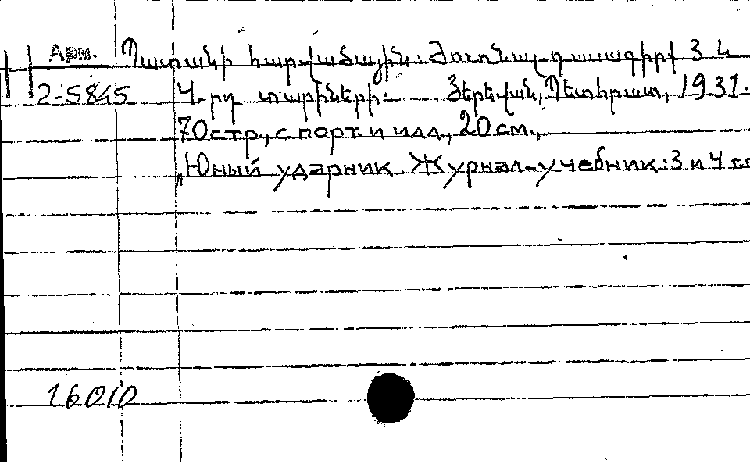 Арм. Պատանի հարվածային: Ժուռնալ-դասագիրք 3 և
2-5845 4-րդ տարիների.— Յերեվան, Պետհրատ, 1931.
70стр., с порт. и илл., 20см.,
„Юный ударник. Журнал-учебник: 3 и 4 гг
16010